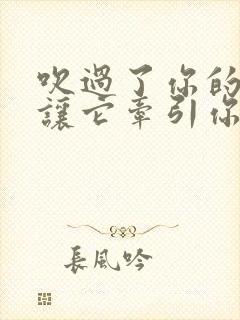 吹過了你的
讓它牽引你
長風吟